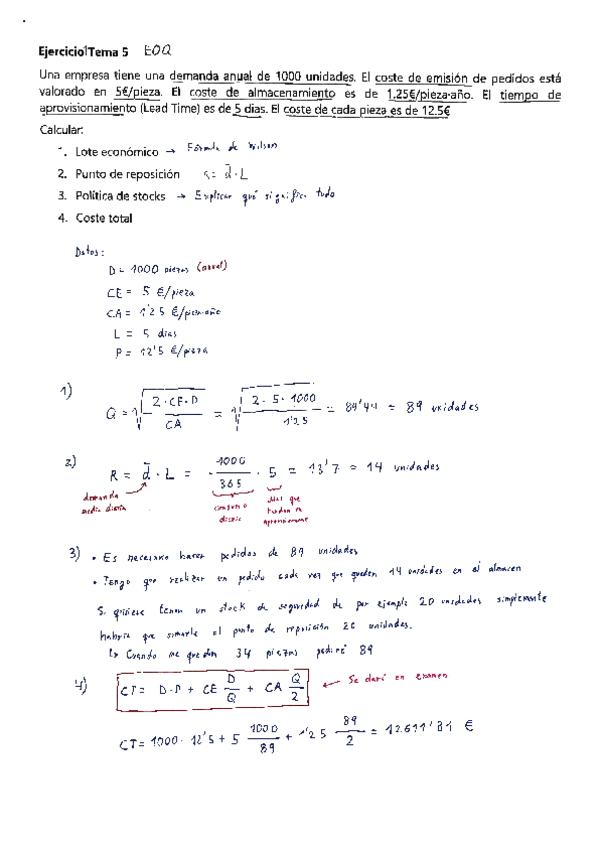 Ejercicio1Tema 5 EOQ
Una empresa tiene una demanda anual de 1000 unidades. El coste de emisión de pedidos está
valorado en 5€/pieza. El coste de almacenamiento es de 1.25€/pieza·año. El tiempo de
aprovisionamiento (Lead Time) es de 5 días. El coste de cada pieza es de 12.5€
Calcular:
1. Lote económico → Fórmula de Wilson
2. Punto de reposición R = d̄ · L
3. Política de stocks → Explicar qué significa todo
4. Coste total
Datos:
D = 1000 piezas (anual)
CE = 5 €/pieza
CA = 1'25 €/pieza·año
L = 5 días
P = 12'5 €/pieza
1) Q = √(2·CE·D / CA) = √(2·5·1000 / 1'25) = 89'44 = 89 unidades
2) R = d̄ · L = 1000/365 · 5 = 13'7 = 14 unidades
demanda media diaria
consumo diario
días que tardan en aprovisionarme
3) • Es necesario hacer pedidos de 89 unidades
• Tengo que realizar un pedido cada vez que queden 14 unidades en el almacen
Si quisiese tener un stock de seguridad de por ejemplo 20 unidades simplemente
habría que sumarle al punto de reposición 20 unidades.
↳ Cuando me queden 34 piezas pediré 89
4) CT = D·P + CE D/Q + CA Q/2 ← Se dará en examen
CT = 1000 · 12'5 + 5 1000/89 + 1'25 89/2 = 12.611'81 €